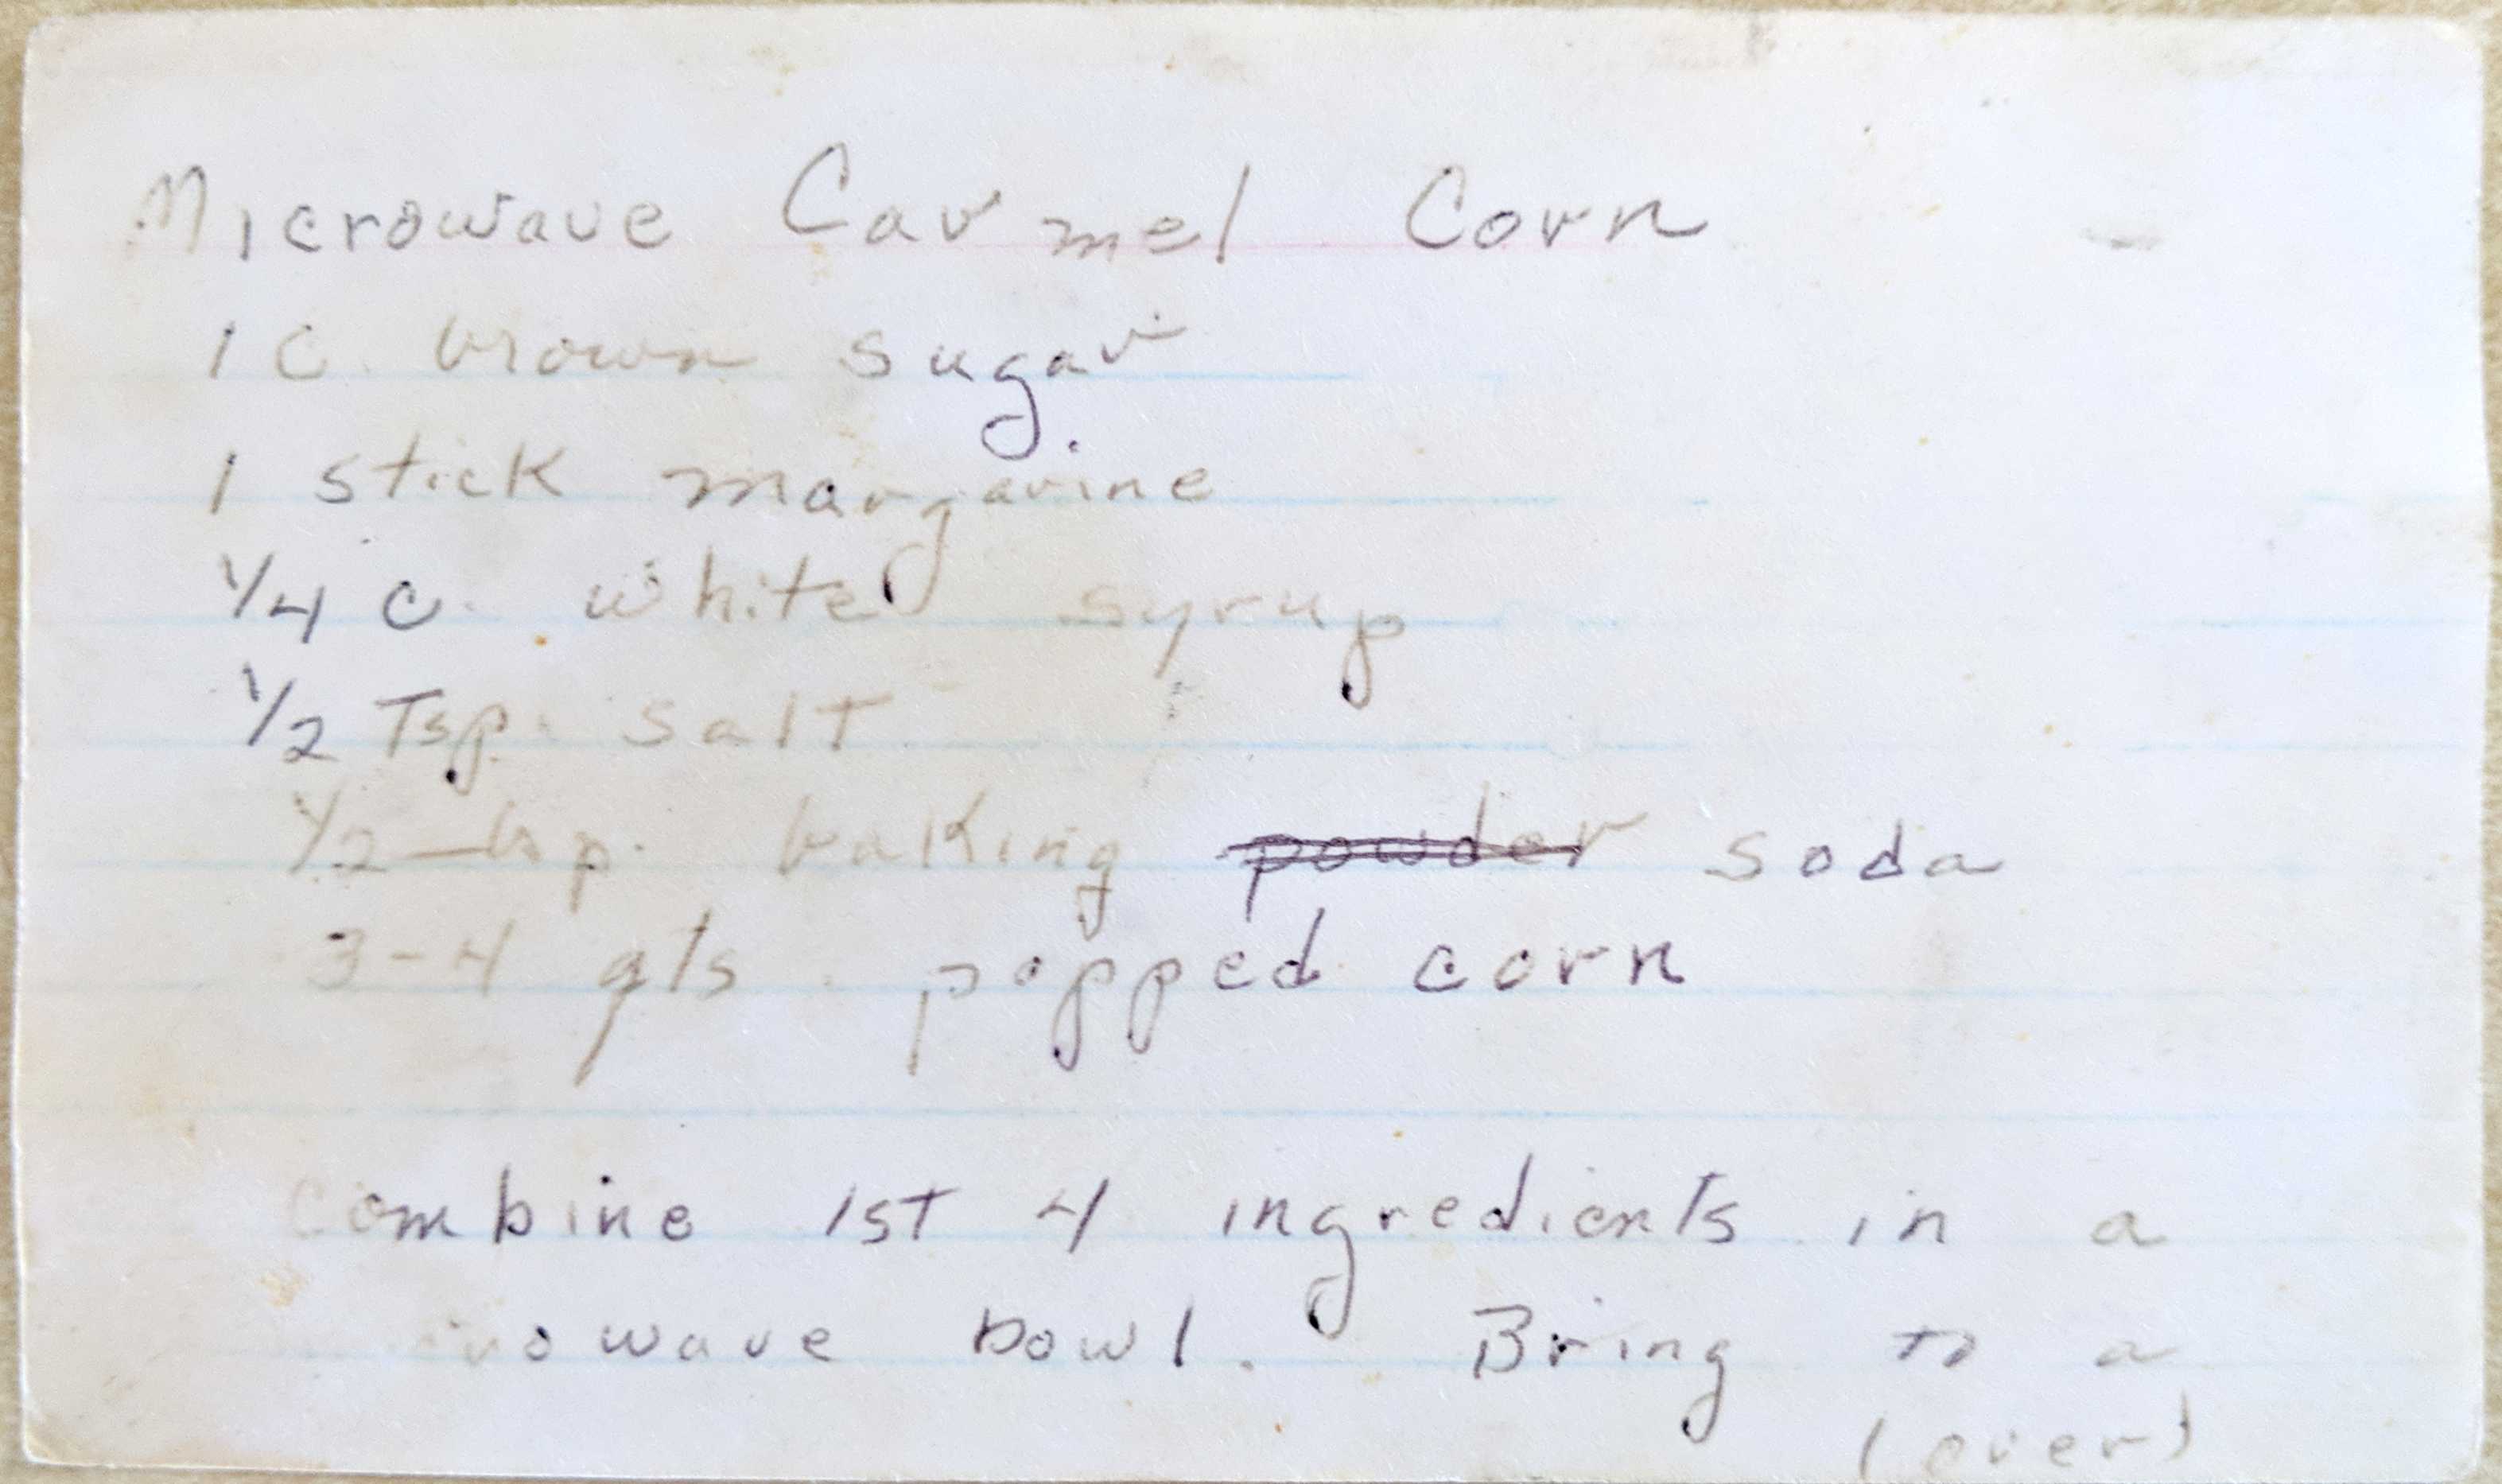 Microwave Carmel Corn
1 c. brown sugar
1 stick margarine
1/4 c. white syrup
1/2 Tsp. salt
1/2 tsp. baking powder soda
3-4 qts. popped corn
Combine 1st 4 ingredients in a
bowl. Bring to a
(over)